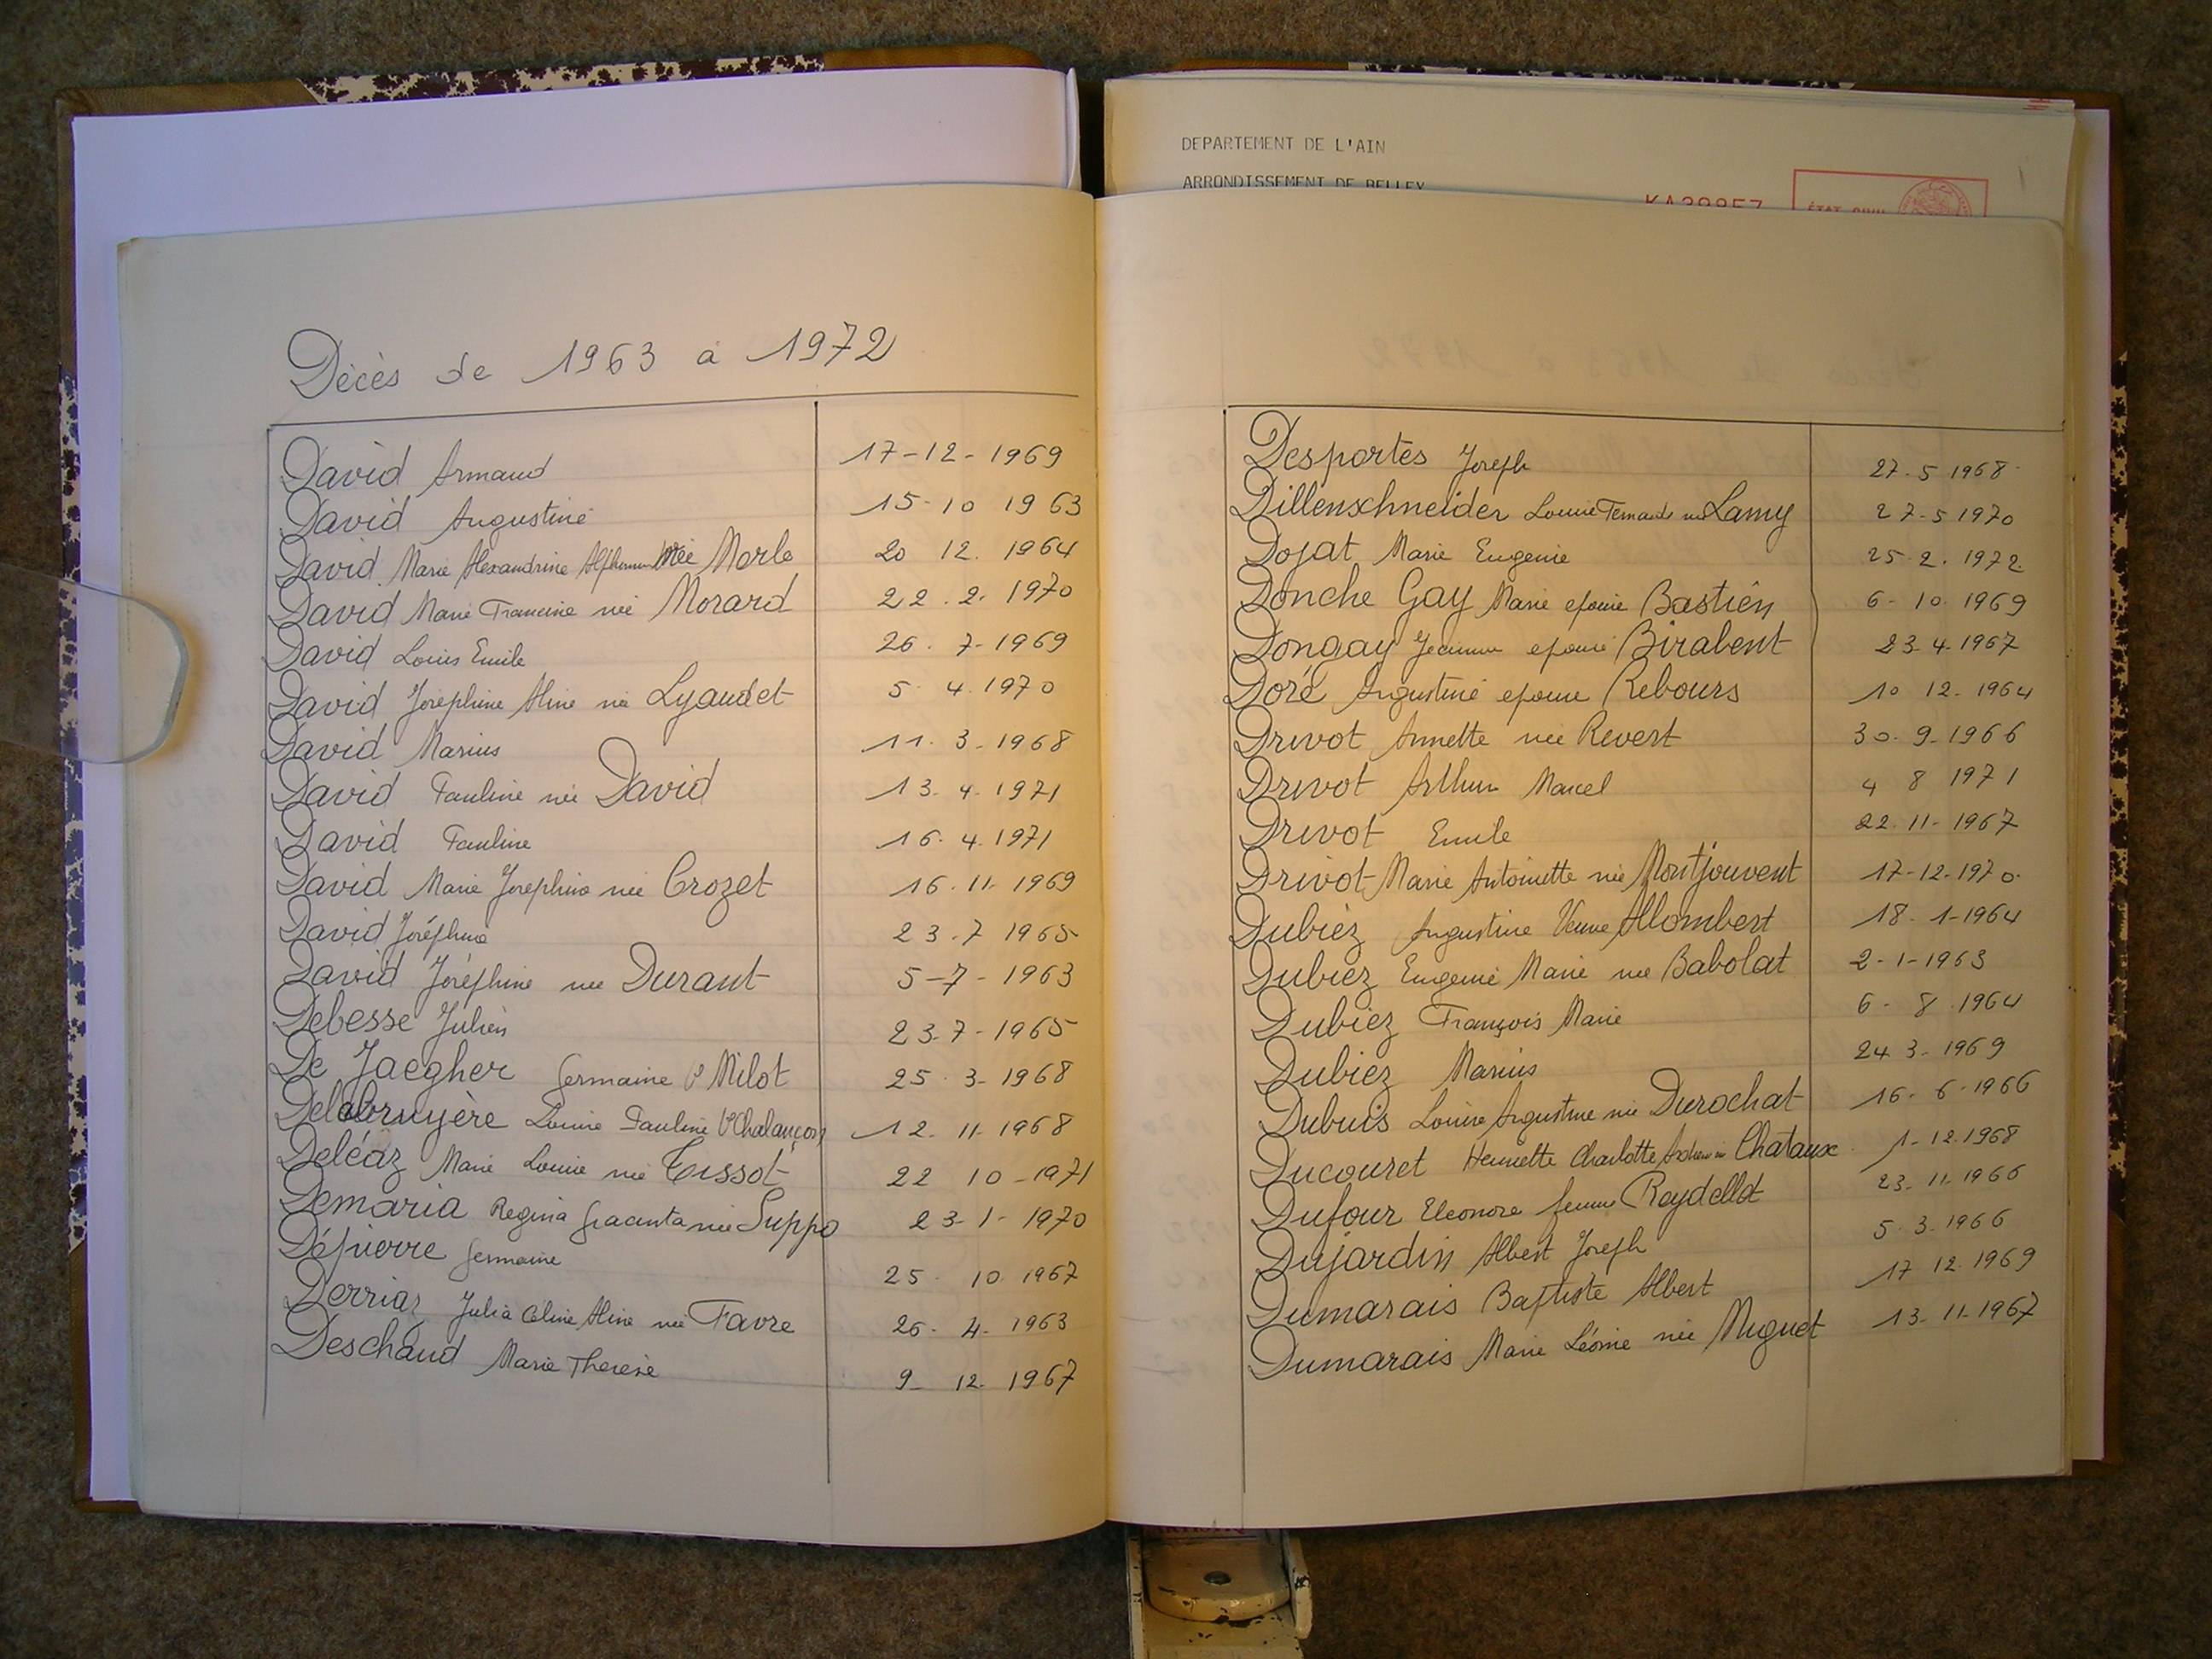 DEPARTEMENT DE L'AIN
ARRONDISSEMENT DE BELLEY
KA39857
ÉTAT CIVIL
Décès de 1963 a 1972
David Armand 17-12-1969
David Augustine 15-10 1963
David Marie Alexandrine née Merle 20 12. 1964
David Marie Francine née Morard 22.2.1970
David Louis Emile 26.7-1969
David Joséphine Aline née Lyaudet 5 4.1970
David Marius 11.3-1968
David Pauline née David 13.4.1971
David Pauline 16.4.1971
David Marie Josephine née Crozet 16.11.1969
David Joséphine 23.7 1965
David Joséphine née Durant 5-7-1963
Debesse Julien 23-7-1965
De Jaegher Germaine Milot 25.3-1968
Delabruyère Louise Pauline Chalançon 12.11.1968
Deléaz Marie Louise née Tissot 22 10-1971
Demaria Regina Giacinta née Suppo 23-1-1970
Dépierre Germaine 25 10 1967
Derriaz Julia Céline Aline née Favre 26.4.1963
Deschaud Marie Therese 9-12-1967
Desportes Joseph 27.5 1968
Dillenschneider Louise Fernande née Lamy 27-5 1970
Dojat Marie Eugenie 25.2.1972
Donche Gay Marie epouse Bastien 6-10 1969
Dongay Jeanne epouse Birabent 23.4.1967
Doré Augustine epouse Rebours 10 12.1964
Drivot Annette née Revert 30.9-1966
Drivot Arthur Marcel 4 8 1971
Drivot Emile 22.11-1967
Drivot Marie Antoinette née Montjouvent 17-12-1970
Dubiez Augustine Veuve Allombert 18-1-1964
Dubiez Eugenie Marie née Babolat 2-1-1963
Dubiez François Marie 6-8 1964
Dubiez Marius 24 3-1969
Dubuis Louise Augustine née Durochat 16.6.1966
Ducouret Henriette Charlotte Chataux 1-12.1968
Dufour Eleonore femme Reydellet 23-11.1966
Dujardin Albert Joseph 5.3.1966
Dumarais Baptiste Albert 17 12.1969
Dumarais Marie Léonie née Muguet 13-11-1967